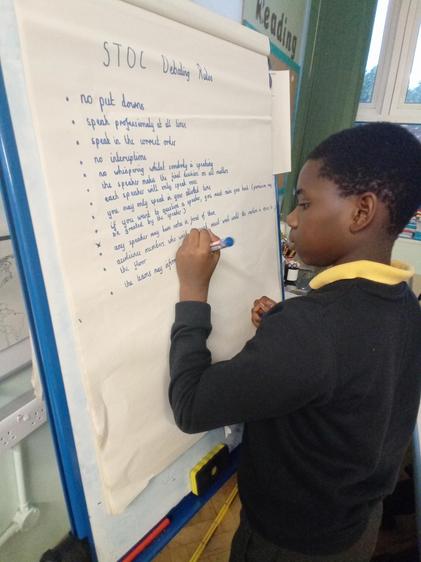 Reading
STOC Debating Rules
• no put downs
• speak professionally at all times
• speak in the correct order
• no interruptions
• no whispering whilst somebody is speaking
• the speaker makes the final decision on all matters
• each speaker will only speak once
• you may only speak in your allotted time
• if you want to question a speaker, you must raise your hand (permission may
be granted by the speaker)
• any speaker may have notes in front of them
• audience members who must wait until the motion is open to
the floor
• the teams may